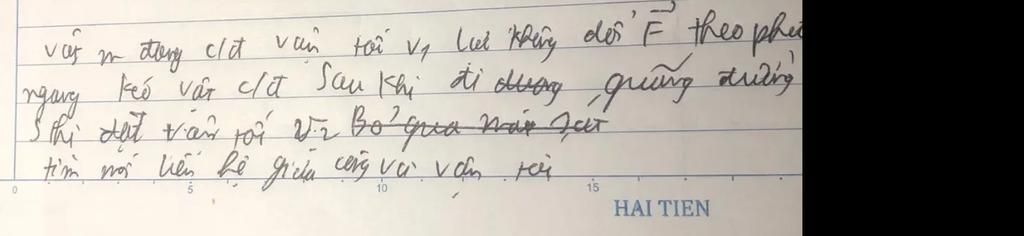 vật m đang c/đ vận tối v₁ lưi không đổi F⃗ theo
ngang kéo vật c/đ Sau khi đi duong quãng đường
S thì đạt vận tối v₂ Bỏ qua mát sát
tìm mối liên hệ giữa công và vận tối
0 5 10 15
HAI TIEN